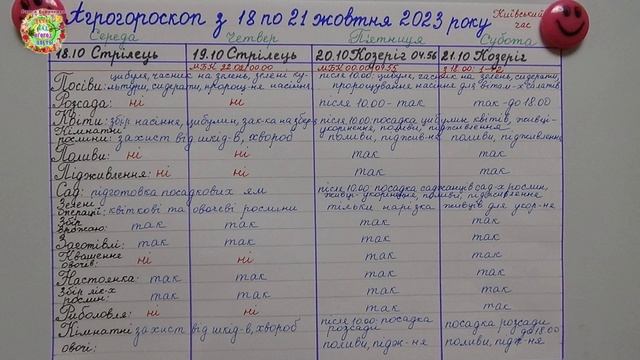 Агрогороскоп з 18 по 21 жовтня 2023 року
Київський час
Середа Четвер П'ятниця Субота
18.10 Стрілець 19.10 Стрілець 20.10 Козеріг 04:56 21.10 Козеріг
Посіви: цибуля, часник на зелень, зелені культури, сидерати, пророщ-не насіння
після 10.00: цибуля, часник на зелень, сидерати, пророщування насіння для вітам-х салатів
Розсада: ні ні після 10.00 - так так - до 18.00
Квіти: збір насіння, цибулин, заг-ка на зберіг
після 10.00: посадка цибулин. квітів, живці-укорінення, поливи, підживлення
Кімнатні рослини: захист від шкід-в, хвороб поливи, піджив-ня поливи, підживлення
Поливи: ні ні так так
Підживлення: ні ні так так
Сад: підготовка посадкових ям
після 10.00: посадка саджанців сад-х рослин, живці-укорінення, поливи, підживлення
Зелені операції: квіткові та овочеві рослини тільки нарізка живців для укор-ня
Збір врожаю: так так так так
Заготівлі: так так так так
Квашення овочів: ні ні так так
Настоянка: так так так так
Збір лік-х рослин: так так так так
Риболовля: ні ні так так
Кімнатні овочі: захист від шкід-в, хвороб
після 10.00: посадка розсади поливи, підж-ня
посадка розсади до 18.00 поливи, підж-ня